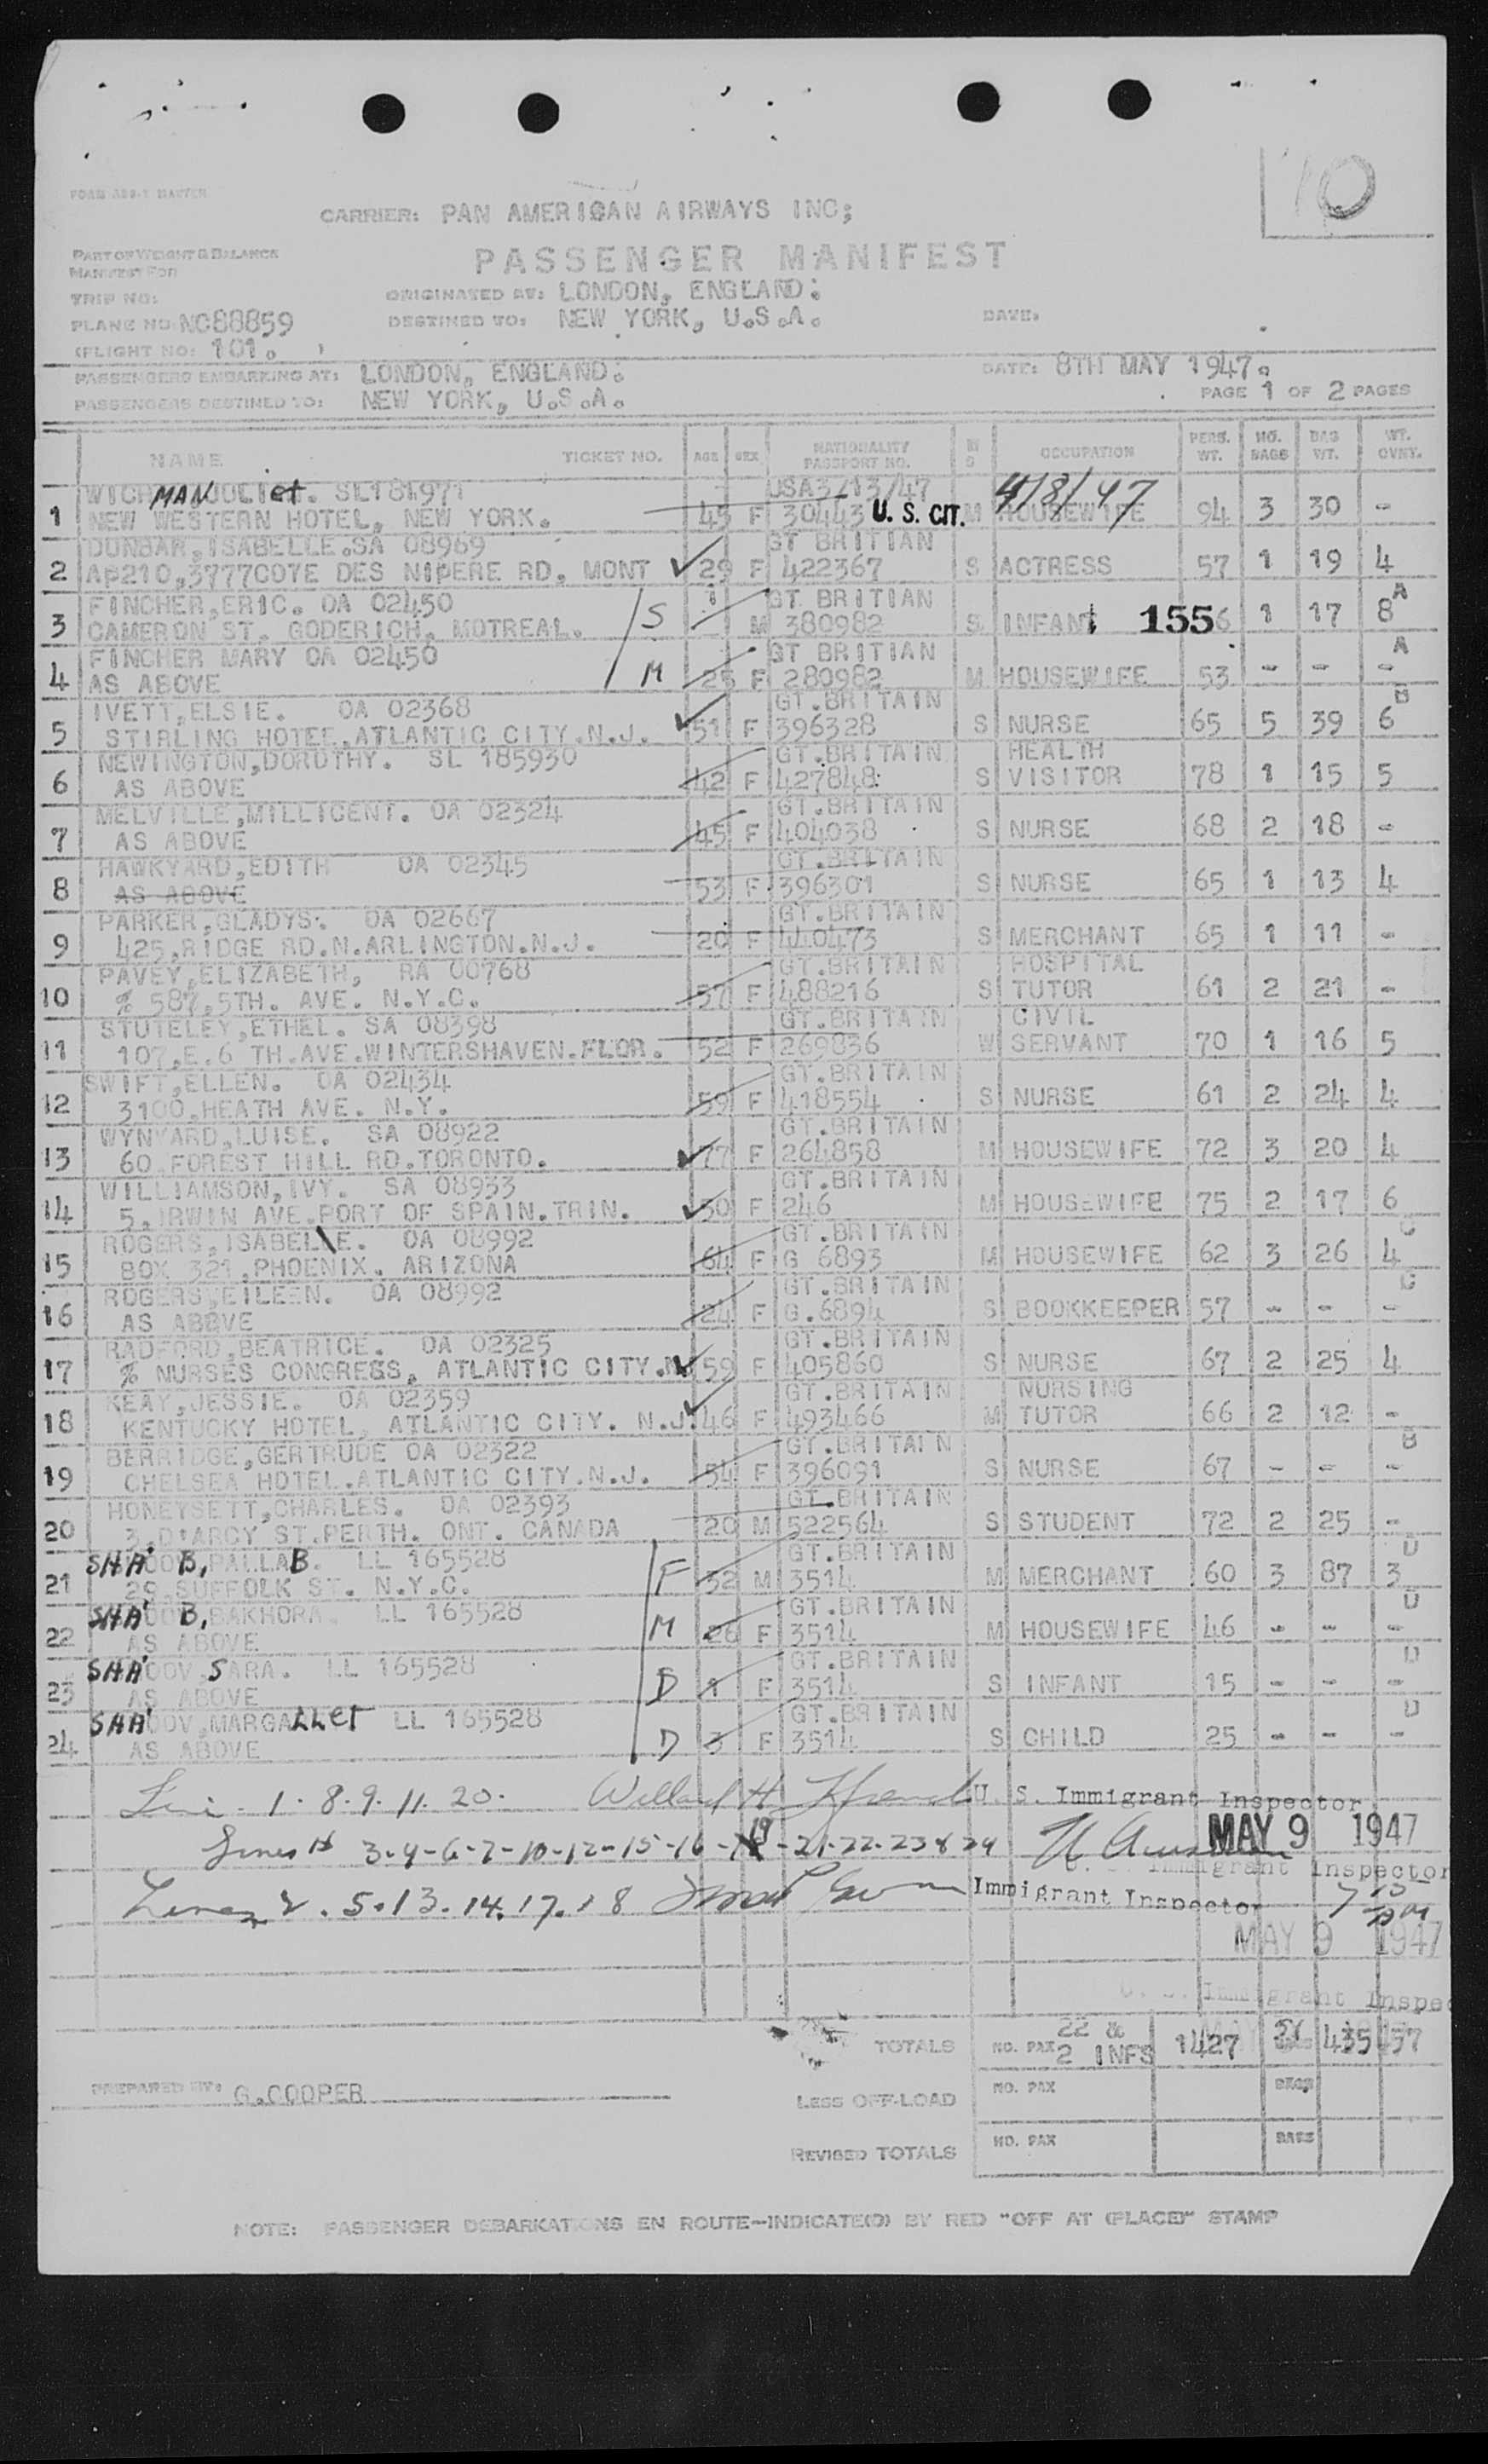 10
FORM 388-1 MASTER
CARRIER: PAN AMERICAN AIRWAYS INC;
PART OF WEIGHT & BALANCE
MANIFEST FOR
PASSENGER MANIFEST
TRIP NO:
ORIGINATED AT: LONDON, ENGLAND:
PLANE NO: NC88859
DESTINED TO: NEW YORK, U.S.A.
DATE:
(FLIGHT NO: 101. )
PASSENGERS EMBARKING AT: LONDON, ENGLAND:
DATE: 8TH MAY 1947.
PASSENGERS DESTINED TO: NEW YORK, U.S.A.
PAGE 1 OF 2 PAGES
NAME TICKET NO. AGE SEX NATIONALITY PASSPORT NO. M S OCCUPATION PERS. WT. NO. BAGS BAG WT. WT. OVNT.
WICHMAN JULIet. SL181971 USA3/13/47 4/8/47
1 NEW WESTERN HOTEL, NEW YORK. 45 F 30443 U. S. CIT. M HOUSEWIFE 94 3 30 -
DUNBAR, ISABELLE.SA 08969 GT BRITIAN
2 AP210,3777COTE DES NIPERE RD, MONT 29 F 422367 S ACTRESS 57 1 19 4
FINCHER,ERIC. OA 02450 1 GT BRITIAN A
3 CAMERON ST. GODERICH, MOTREAL. S M 380982 S INFANT 1556 1 17 8
FINCHER MARY OA 02450 GT BRITIAN A
4 AS ABOVE M 25 F 280982 M HOUSEWIFE 53 - - -
IVETT,ELSIE. OA 02368 GT.BRITAIN B
5 STIRLING HOTEL,ATLANTIC CITY.N.J. 51 F 396328 S NURSE 65 5 39 6
NEWINGTON,DOROTHY. SL 185930 GT.BRITAIN HEALTH
6 AS ABOVE 42 F 427848: S VISITOR 78 1 15 5
MELVILLE,MILLICENT. OA 02324 GT.BRITAIN
7 AS ABOVE 45 F 404038 S NURSE 68 2 18 -
HAWKYARD,EDITH OA 02345 GT.BRITAIN
8 AS ABOVE 53 F 396301 S NURSE 65 1 13 4
PARKER,GLADYS. OA 02667 GT.BRITAIN
9 425,RIDGE RD.N.ARLINGTON.N.J. 20 F 440473 S MERCHANT 65 1 11 -
PAVEY,ELIZABETH, RA 00768 GT.BRITAIN HOSPITAL
10 % 587,5TH. AVE. N.Y.C. 57 F 488216 S TUTOR 61 2 21 -
STUTELEY,ETHEL. SA 08398 GT.BRITAIN CIVIL
11 107,E.6 TH.AVE.WINTERSHAVEN.FLOR. 52 F 269836 W SERVANT 70 1 16 5
SWIFT,ELLEN. OA 02434 GT.BRITAIN
12 3100,HEATH AVE. N.Y. 59 F 418554 S NURSE 61 2 24 4
WYNYARD,LUISE. SA 08922 GT.BRITAIN
13 60 FOREST HILL RD.TORONTO. 77 F 264858 M HOUSEWIFE 72 3 20 4
WILLIAMSON,IVY. SA 08933 GT.BRITAIN
14 5,IRWIN AVE.PORT OF SPAIN.TRIN. 50 F 246 M HOUSEWIFE 75 2 17 6
ROGERS,ISABELLE. OA 08992 GT.BRITAIN C
15 BOX 321,PHOENIX. ARIZONA 64 F G 6893 M HOUSEWIFE 62 3 26 4
ROGERS,EILEEN. OA 08992 GT.BRITAIN C
16 AS ABBVE 24 F G.6894 S BOOKKEEPER 57 - - -
RADFORD,BEATRICE. OA 02325 GT.BRITAIN
17 % NURSES CONGRESS, ATLANTIC CITY.N 59 F 405860 S NURSE 67 2 25 4
KEAY,JESSIE. OA 02359 GT.BRITAIN NURSING
18 KENTUCKY HOTEL, ATLANTIC CITY. N.J. 46 F 493466 M TUTOR 66 2 12 -
BERRIDGE,GERTRUDE OA 02322 GT.BRITAIN B
19 CHELSEA HOTEL.ATLANTIC CITY.N.J. 54 F 396091 S NURSE 67 - - -
HONEYSETT,CHARLES. OA 02393 GT.BRITAIN
20 3,D'ARCY ST.PERTH. ONT. CANADA 20 M 522564 S STUDENT 72 2 25 -
SHA'OO B, PALLAB. LL 165528 GT.BRITAIN D
21 29,SUFFOLK ST. N.Y.C. F 32 M 3514 M MERCHANT 60 3 87 3
SHA'OO B, BAKHORA. LL 165528 GT.BRITAIN D
22 AS ABOVE M 26 F 3514 M HOUSEWIFE 46 - - -
SHA'OOV SARA. LL 165528 GT.BRITAIN D
23 AS ABOVE D 1 F 3514 S INFANT 15 - - -
SHA'OOV,MARGARRet LL 165528 GT.BRITAIN D
24 AS ABOVE D 3 F 3514 S CHILD 25 - - -
1. 8. 9. 11. 20. Willard H. U. S. Immigrant Inspector
Lines 3-4-6-7-10-12-15-16-19-21-22-23 & 24 MAY 9 1947
U. S. Immigrant Inspector
Lines 2. 5. 13. 14. 17. 18 Immigrant Inspector
MAY 9 1947
U. S. Immigrant Inspec
TOTALS NO. PAX 22 & 2 INFS 1427 435 57
PREPARED BY: G.COOPER
LESS OFF-LOAD NO. PAX BAGS
REVISED TOTALS NO. PAX BAGS
NOTE: PASSENGER DEBARKATIONS EN ROUTE—INDICATE(D) BY RED "OFF AT (PLACE)" STAMP